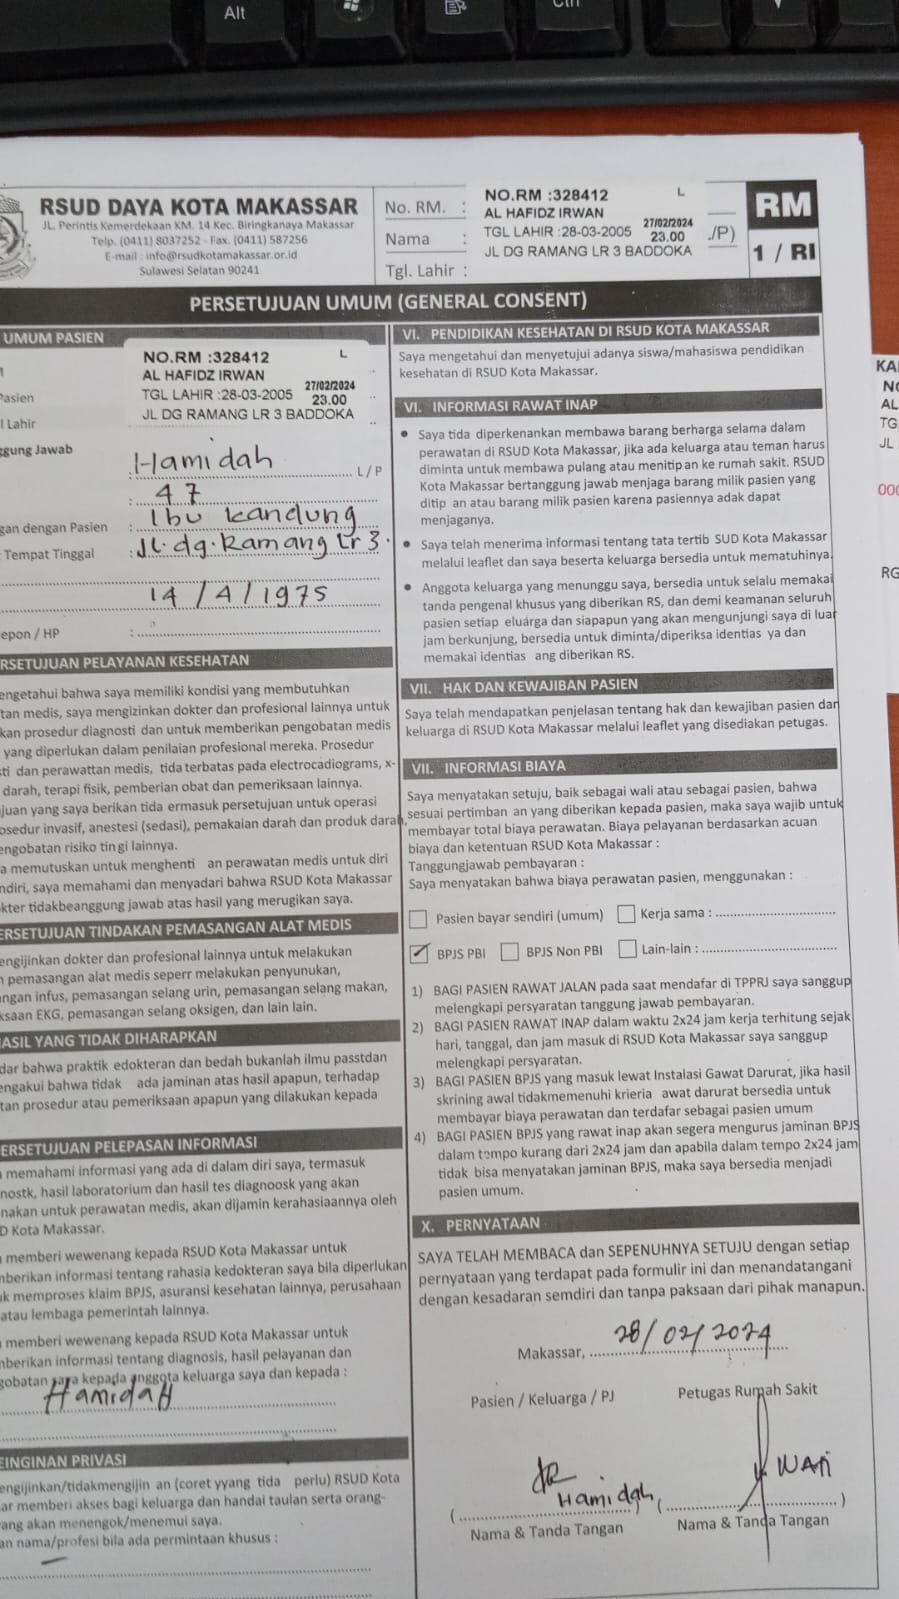 Alt
Ctrl
RSUD DAYA KOTA MAKASSAR
JL. Perintis Kemerdekaan KM. 14 Kec. Biringkanaya Makassar
Telp. (0411) 8037252 - Fax. (0411) 587256
E-mail : info@rsudkotamakassar.or.id
Sulawesi Selatan 90241
No. RM. :
Nama :
Tgl. Lahir :
NO.RM :328412 L
AL HAFIDZ IRWAN
TGL LAHIR :28-03-2005 27/02/2024 23.00
JL DG RAMANG LR 3 BADDOKA
/P)
RM
1 / RI
PERSETUJUAN UMUM (GENERAL CONSENT)
UMUM PASIEN
NO.RM :328412 L
AL HAFIDZ IRWAN
TGL LAHIR :28-03-2005 27/02/2024 23.00
JL DG RAMANG LR 3 BADDOKA
Pasien
l Lahir
ggung Jawab
: Hamidah L / P
: 47
gan dengan Pasien : Ibu kandung
Tempat Tinggal : Jl. dg. Ramang Lr 3.
14 / 4 / 1975
epon / HP :
RSETUJUAN PELAYANAN KESEHATAN
engetahui bahwa saya memiliki kondisi yang membutuhkan
tan medis, saya mengizinkan dokter dan profesional lainnya untuk
kan prosedur diagnosti dan untuk memberikan pengobatan medis
yang diperlukan dalam penilaian profesional mereka. Prosedur
sti dan perawattan medis, tida terbatas pada electrocadiograms, x-
darah, terapi fisik, pemberian obat dan pemeriksaan lainnya.
juan yang saya berikan tida ermasuk persetujuan untuk operasi
osedur invasif, anestesi (sedasi), pemakaian darah dan produk darah,
engobatan risiko tin gi lainnya.
a memutuskan untuk menghenti an perawatan medis untuk diri
ndiri, saya memahami dan menyadari bahwa RSUD Kota Makassar
kter tidakbeanggung jawab atas hasil yang merugikan saya.
ERSETUJUAN TINDAKAN PEMASANGAN ALAT MEDIS
engijinkan dokter dan profesional lainnya untuk melakukan
n pemasangan alat medis seperr melakukan penyunukan,
ngan infus, pemasangan selang urin, pemasangan selang makan,
ksaan EKG, pemasangan selang oksigen, dan lain lain.
ASIL YANG TIDAK DIHARAPKAN
dar bahwa praktik edokteran dan bedah bukanlah ilmu passtdan
engakui bahwa tidak ada jaminan atas hasil apapun, terhadap
tan prosedur atau pemeriksaan apapun yang dilakukan kepada
ERSETUJUAN PELEPASAN INFORMASI
memahami informasi yang ada di dalam diri saya, termasuk
nostk, hasil laboratorium dan hasil tes diagnoosk yang akan
nakan untuk perawatan medis, akan dijamin kerahasiaannya oleh
D Kota Makassar.
memberi wewenang kepada RSUD Kota Makassar untuk
nberikan informasi tentang rahasia kedokteran saya bila diperlukan
uk memproses klaim BPJS, asuransi kesehatan lainnya, perusahaan
atau lembaga pemerintah lainnya.
memberi wewenang kepada RSUD Kota Makassar untuk
nberikan informasi tentang diagnosis, hasil pelayanan dan
gobatan saya kepada anggota keluarga saya dan kepada :
Hamidah
EINGINAN PRIVASI
engijinkan/tidakmengijin an (coret yyang tida perlu) RSUD Kota
ar memberi akses bagi keluarga dan handai taulan serta orang-
ang akan menengok/menemui saya.
an nama/profesi bila ada permintaan khusus :
VI. PENDIDIKAN KESEHATAN DI RSUD KOTA MAKASSAR
Saya mengetahui dan menyetujui adanya siswa/mahasiswa pendidikan
kesehatan di RSUD Kota Makassar.
VI. INFORMASI RAWAT INAP
• Saya tida diperkenankan membawa barang berharga selama dalam
perawatan di RSUD Kota Makassar, jika ada keluarga atau teman harus
diminta untuk membawa pulang atau menitip an ke rumah sakit. RSUD
Kota Makassar bertanggung jawab menjaga barang milik pasien yang
ditip an atau barang milik pasien karena pasiennya adak dapat
menjaganya.
• Saya telah menerima informasi tentang tata tertib SUD Kota Makassar
melalui leaflet dan saya beserta keluarga bersedia untuk mematuhinya.
• Anggota keluarga yang menunggu saya, bersedia untuk selalu memakai
tanda pengenal khusus yang diberikan RS, dan demi keamanan seluruh
pasien setiap eluarga dan siapapun yang akan mengunjungi saya di luar
jam berkunjung, bersedia untuk diminta/diperiksa identias ya dan
memakai identias ang diberikan RS.
VII. HAK DAN KEWAJIBAN PASIEN
Saya telah mendapatkan penjelasan tentang hak dan kewajiban pasien dan
keluarga di RSUD Kota Makassar melalui leaflet yang disediakan petugas.
VII. INFORMASI BIAYA
Saya menyatakan setuju, baik sebagai wali atau sebagai pasien, bahwa
sesuai pertimban an yang diberikan kepada pasien, maka saya wajib untuk
membayar total biaya perawatan. Biaya pelayanan berdasarkan acuan
biaya dan ketentuan RSUD Kota Makassar :
Tanggungjawab pembayaran :
Saya menyatakan bahwa biaya perawatan pasien, menggunakan :
Pasien bayar sendiri (umum) Kerja sama :
✓ BPJS PBI BPJS Non PBI Lain-lain :
1) BAGI PASIEN RAWAT JALAN pada saat mendafar di TPPRJ saya sanggup
melengkapi persyaratan tanggung jawab pembayaran.
2) BAGI PASIEN RAWAT INAP dalam waktu 2x24 jam kerja terhitung sejak
hari, tanggal, dan jam masuk di RSUD Kota Makassar saya sanggup
melengkapi persyaratan.
3) BAGI PASIEN BPJS yang masuk lewat Instalasi Gawat Darurat, jika hasil
skrining awal tidakmemenuhi krieria awat darurat bersedia untuk
membayar biaya perawatan dan terdafar sebagai pasien umum
4) BAGI PASIEN BPJS yang rawat inap akan segera mengurus jaminan BPJS
dalam tempo kurang dari 2x24 jam dan apabila dalam tempo 2x24 jam
tidak bisa menyatakan jaminan BPJS, maka saya bersedia menjadi
pasien umum.
X. PERNYATAAN
SAYA TELAH MEMBACA dan SEPENUHNYA SETUJU dengan setiap
pernyataan yang terdapat pada formulir ini dan menandatangani
dengan kesadaran semdiri dan tanpa paksaan dari pihak manapun.
Makassar, 28/02/2024
Pasien / Keluarga / PJ Petugas Rumah Sakit
Hamidah
WAN
Nama & Tanda Tangan Nama & Tanda Tangan
KA
NO
AL
TG
JL
000
RG